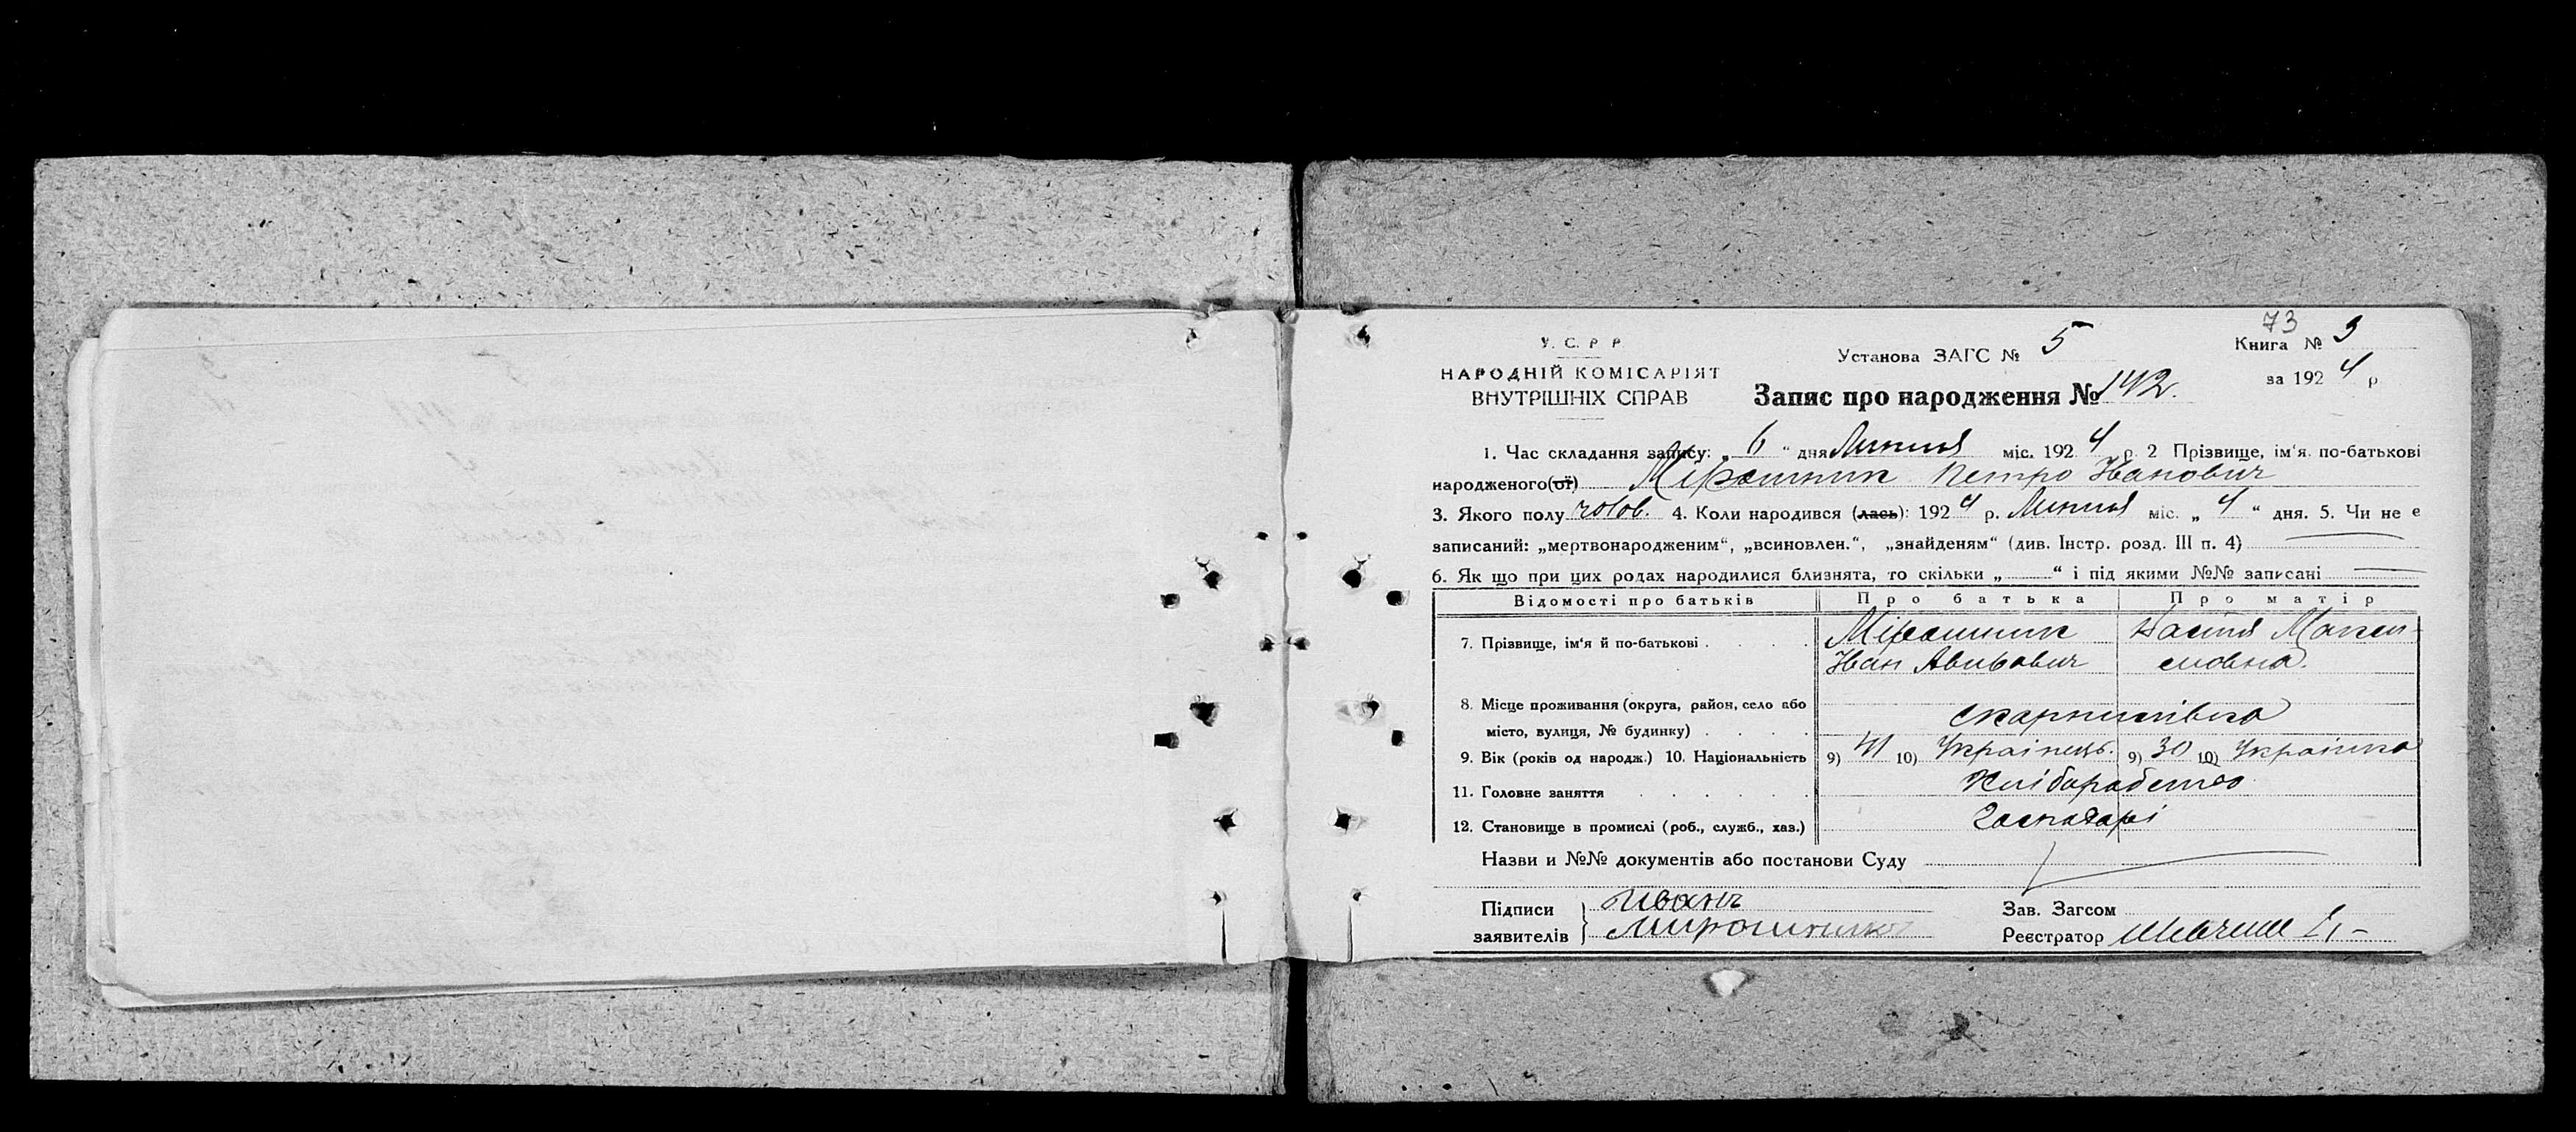 У. С. Р Р
НАРОДНІЙ КОМІСАРІЯТ
ВНУТРІШНІХ СПРАВ
Установа ЗАГС № 5
73
Книга № 3
за 1924 р
Запис про народження № 142.
1. Час складання запису: „6“ дня Липня міс. 1924 р. 2 Прізвище, ім'я, по-батькові
народженого(ої) Мірошник Петро Іванович
3. Якого полу чолов. 4. Коли народився (лась): 1924 р. Липня міс. „4“ дня. 5. Чи не є
записаний: „мертвонародженим“, „всиновлен.“, „знайденям“ (див. Інстр. розд. III п. 4)
6. Як що при цих родах народилися близнята, то скільки „ “ і під якими №№ записані
Відомості про батьків Про батька Про матір
7. Прізвище, ім'я й по-батькові Мірошник Настя Макси-
Іван мовна.
8. Місце проживання (округа, район, село або
місто, вулиця, № будинку)
9. Вік (років од народж.) 10. Національність 9) 41 10) Українець. 9) 30 10) Українка
11. Головне заняття Хліборобство
12. Становище в промислі (роб., служб., хаз.) Господарі
Назви и №№ документів або постанови Суду
Підписи Иванъ
заявителів Мирошник
Зав. Загсом
Реєстратор